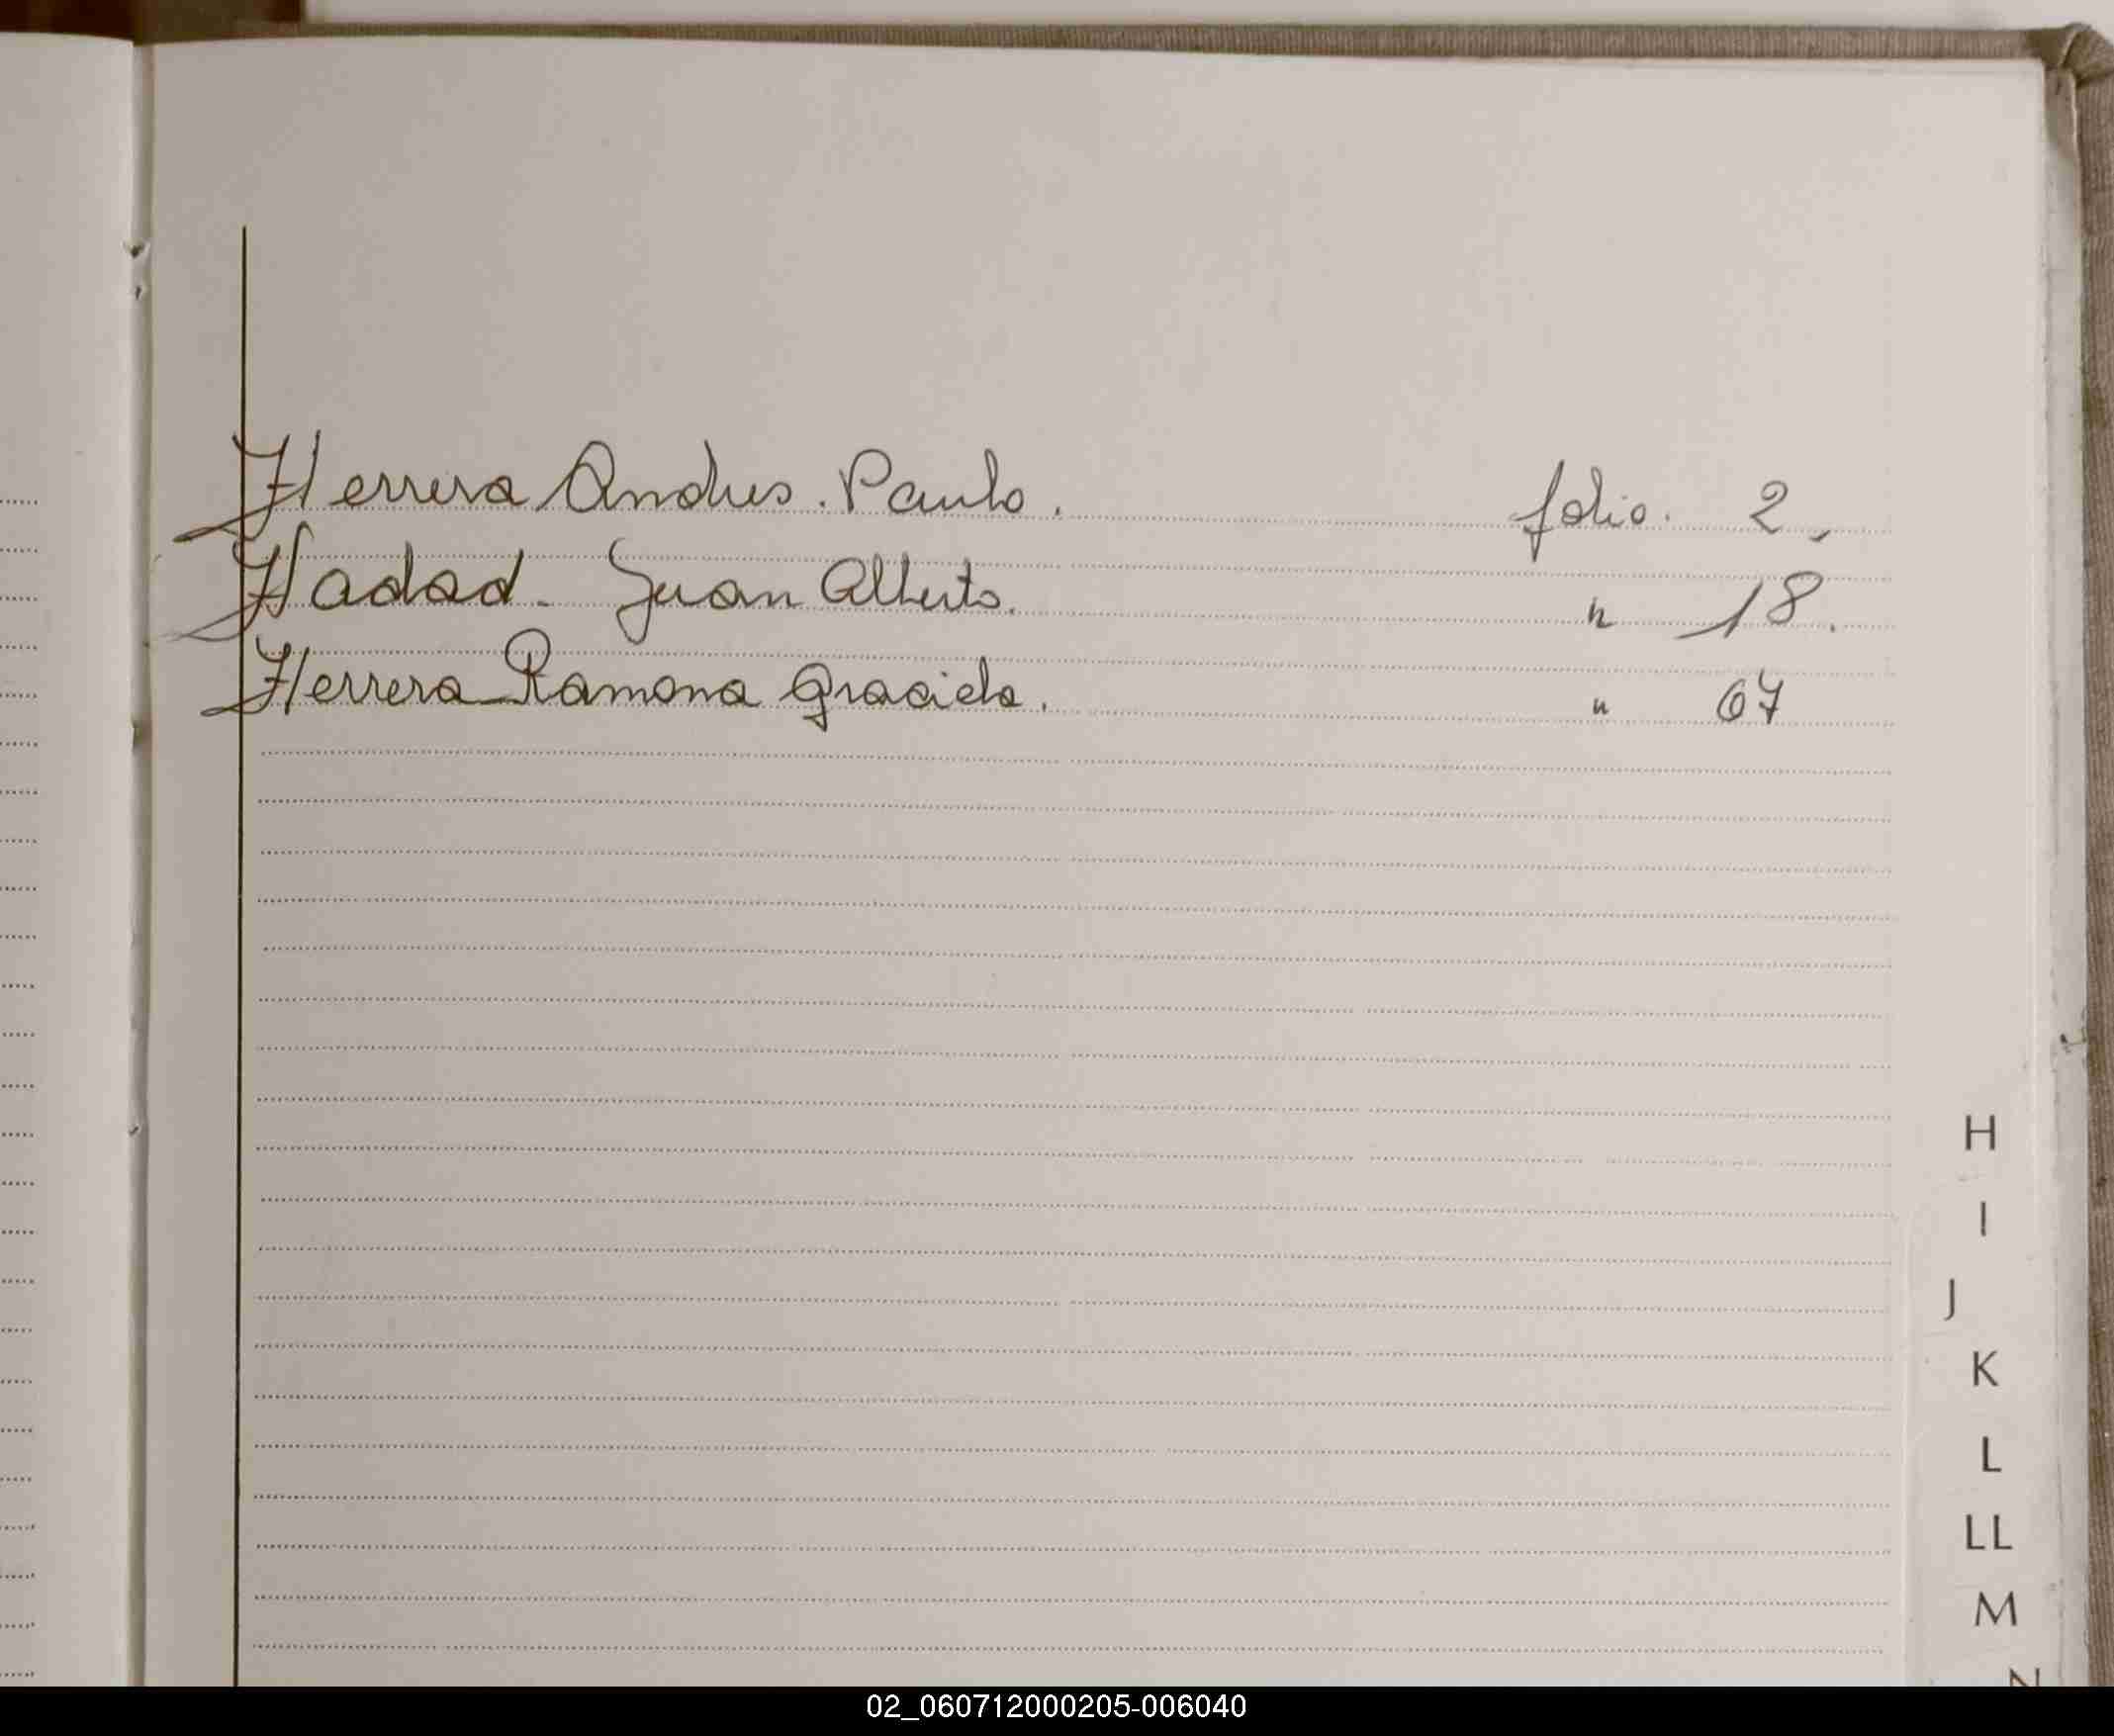 Herrera Andres. Paulo. folio. 2.
Hadad. Juan Alberto. " 18.
Herrera Ramona Graciela. " 67
H
I
J
K
L
LL
M
N
02_060712000205-006040